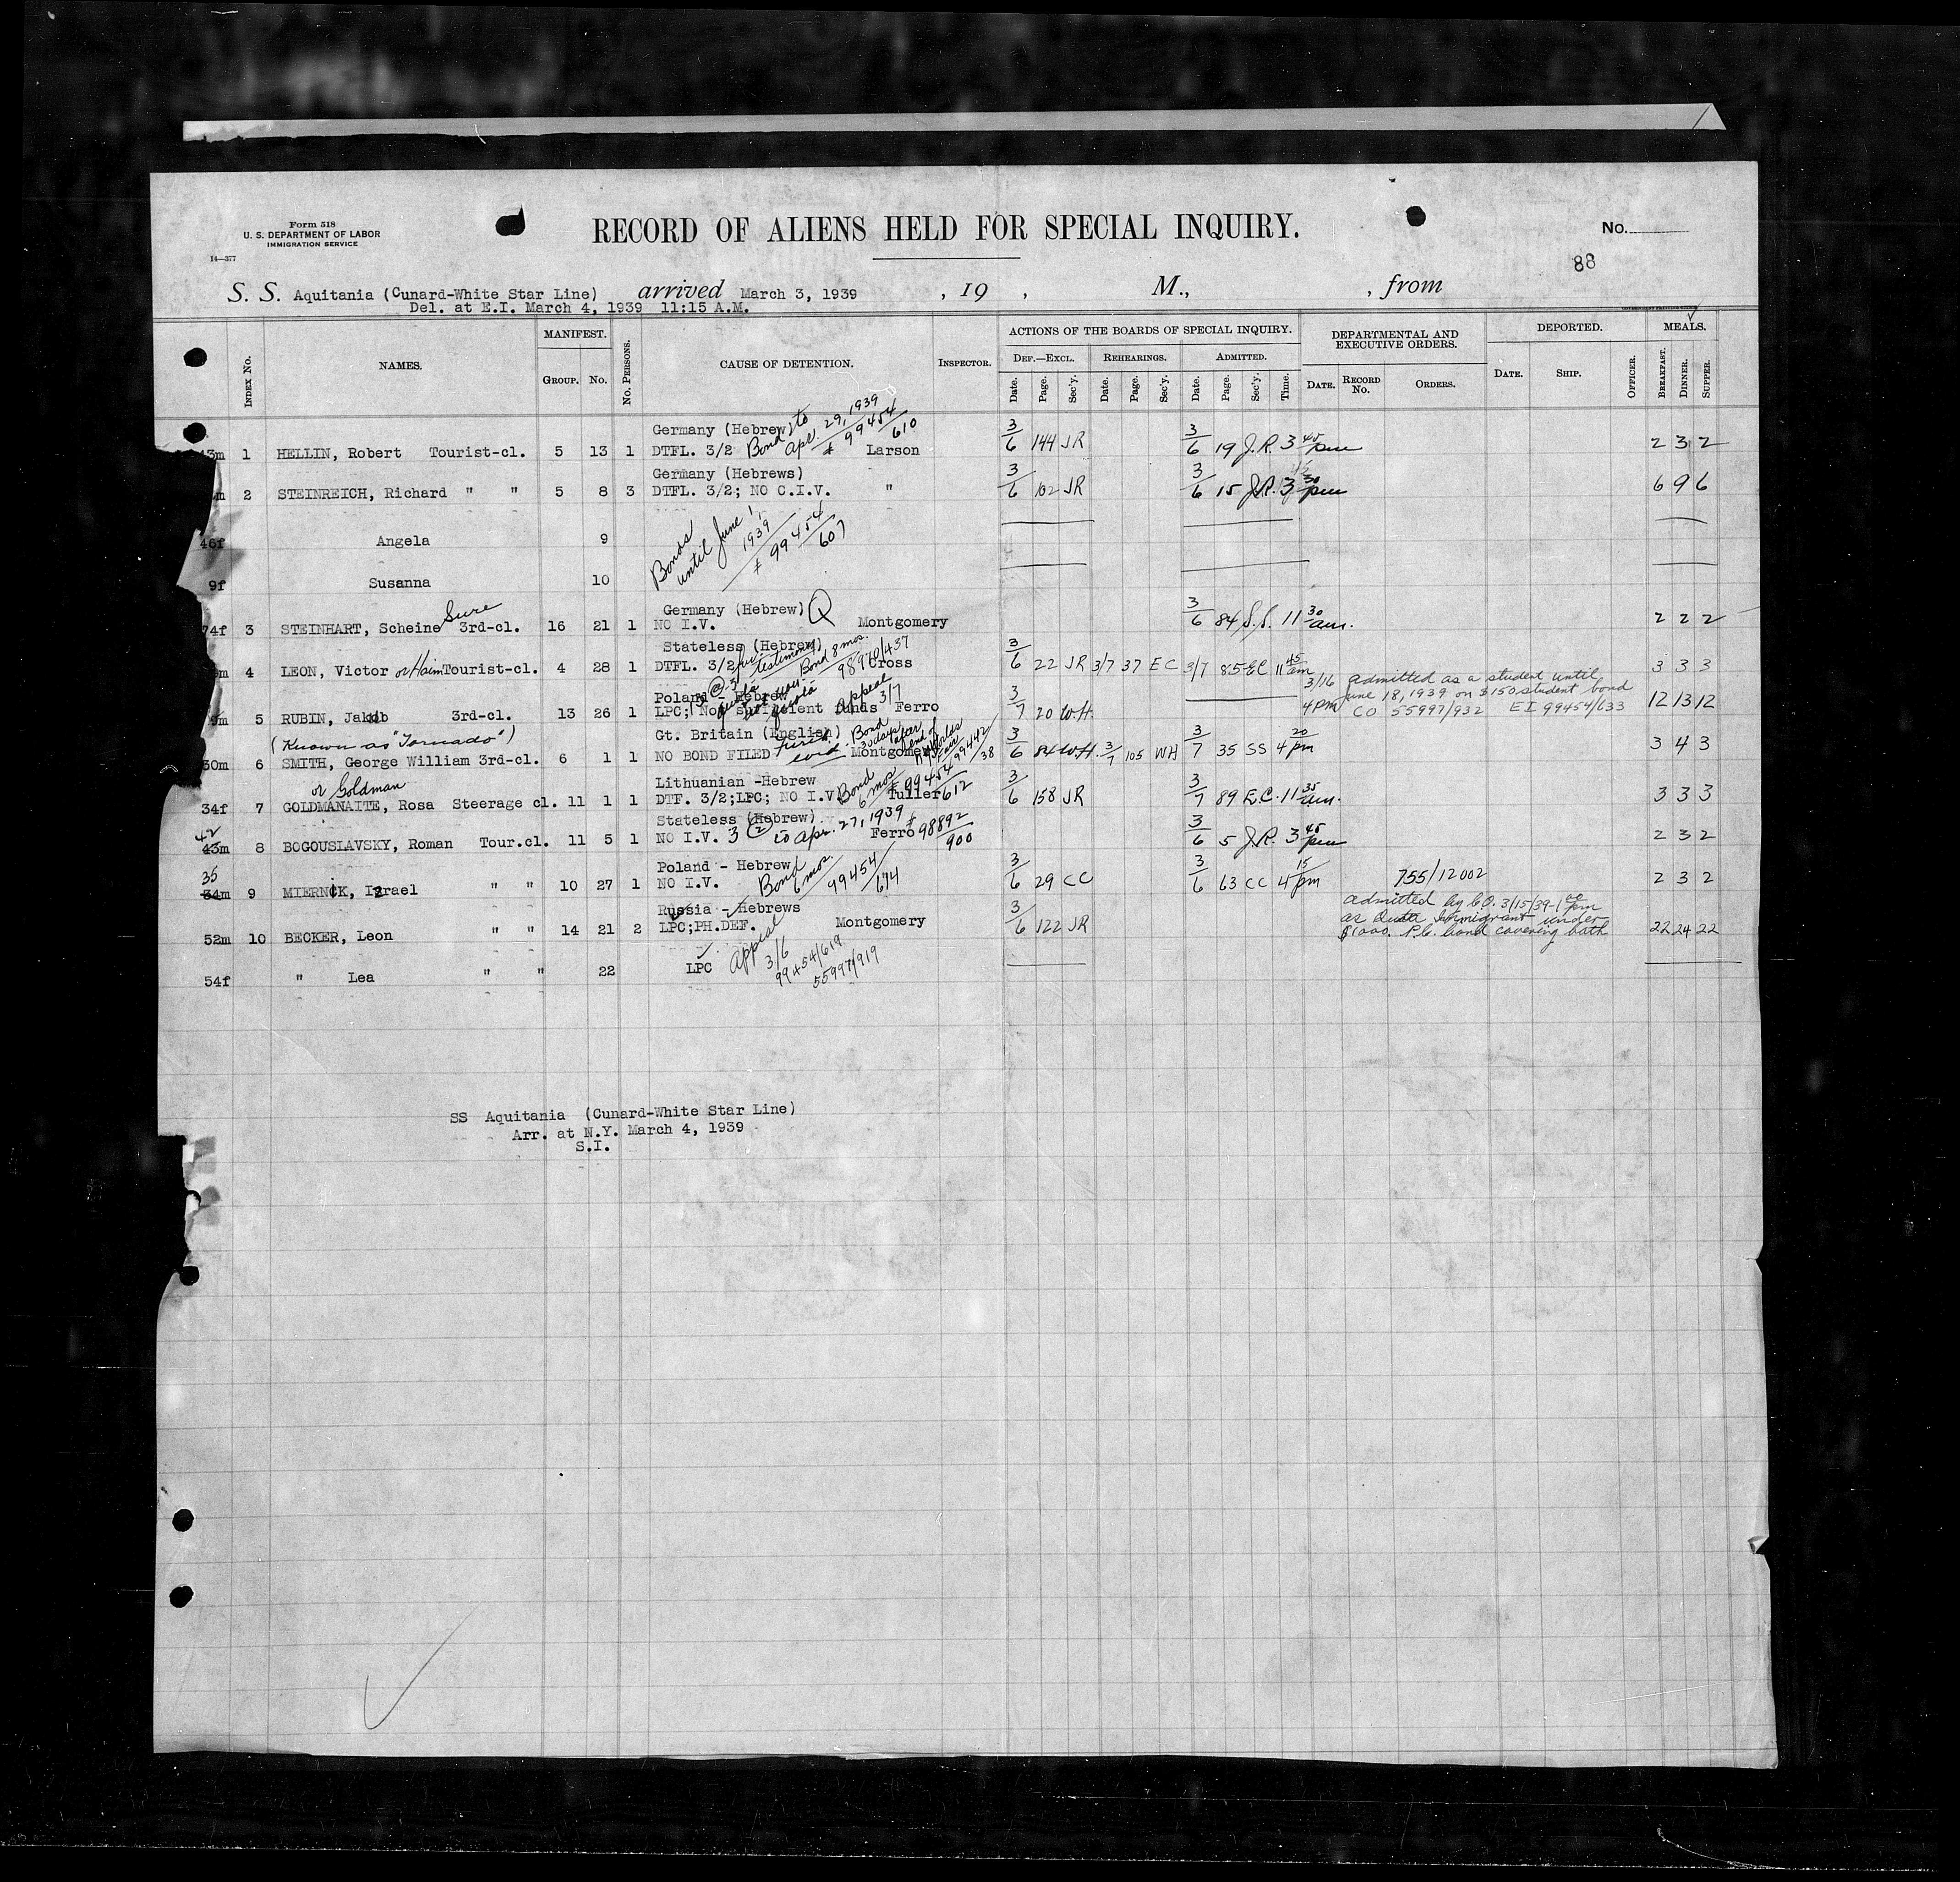 Form 518
U. S. DEPARTMENT OF LABOR
IMMIGRATION SERVICE
14—377
RECORD OF ALIENS HELD FOR SPECIAL INQUIRY.
No.
88
S. S. Aquitania (Cunard-White Star Line) arrived March 3, 1939 , 19 , M., , from
Del. at E.I. March 4, 1939 11:15 A.M.
INDEX NO. NAMES. MANIFEST. NO. PERSONS. CAUSE OF DETENTION. INSPECTOR. ACTIONS OF THE BOARDS OF SPECIAL INQUIRY. DEPARTMENTAL AND EXECUTIVE ORDERS. DEPORTED. MEALS.
GROUP. NO. DEF.—EXCL. REHEARINGS. ADMITTED.
Date. Page. Sec'y. Date. Page. Sec'y. Date. Page. Sec'y. Time. DATE. RECORD NO. ORDERS. DATE. SHIP. OFFICER. BREAKFAST. DINNER. SUPPER.
Germany (Hebrew) Bond to Apr. 29, 1939 99454/610
3m 1 HELLIN, Robert Tourist-cl. 5 13 1 DTFL. 3/2 Larson 3/6 144 JR 3/6 19 J.R. 3 45 pm 2 3 2
Germany (Hebrews)
m 2 STEINREICH, Richard " " 5 8 3 DTFL. 3/2; NO C.I.V. " 3/6 102 JR 3/6 15 J.R. 3 30 pm 6 9 6
Bonds until June 1, 1939 99454/607
46f Angela 9
9f Susanna 10
Sure Germany (Hebrew) Q
74f 3 STEINHART, Scheine 3rd-cl. 16 21 1 NO I.V. Montgomery 3/6 84 S.S. 11 30 am. 2 2 2
Stateless (Hebrew) testimony Bond 8 mos. 98970/437
m 4 LEON, Victor or Haim Tourist-cl. 4 28 1 DTFL. 3/2 Cross 3/6 22 JR 3/7 37 EC 3/7 85 EC 11 45 am 3 3 3
Poland - Hebrew Appeal 3/7
m 5 RUBIN, Jakob 3rd-cl. 13 26 1 LPC; Not sufficient funds Ferro 3/7 20 W.H. 12 13 12
3/16 admitted as a student until
June 18, 1939 on $150 student bond
4 PM CO 55997/932 EI 99454/633
(Known as "Tornado") Gt. Britain (English) Bond 30 days after end of Worlds Fair 99442/38
30m 6 SMITH, George William 3rd-cl. 6 1 1 NO BOND FILED Montgomery 3/6 84 W.H. 3/7 105 WH 3/7 35 SS 4 20 pm 3 4 3
or Goldman Lithuanian -Hebrew Bond 6 mos 99454/612
34f 7 GOLDMANAITE, Rosa Steerage cl. 11 1 1 DTF. 3/2;LPC; NO I.V. Tuller 3/6 158 JR 3/7 89 E.C. 11 35 am. 3 3 3
42 Stateless (Hebrew) to Apr. 27, 1939 98892/900
43m 8 BOGOUSLAVSKY, Roman Tour.cl. 11 5 1 NO I.V. 3 (2) Ferro 3/6 5 J.R. 3 45 pm 2 3 2
35 Poland - Hebrew Bond 6 mos. 99454/614
34m 9 MIERNCK, Izrael " " 10 27 1 NO I.V. 3/6 29 CC 3/6 63 CC 4 15 pm 755/12002 2 3 2
Russia - Hebrews
52m 10 BECKER, Leon " " 14 21 2 LPC;PH.DEF. Montgomery 3/6 122 JR 22 24 22
admitted by C.O. 3/15/39-1 pm
as Quota Immigrant under
$1000. P.C. bond covering both
54f " Lea " " 22 LPC Appeal 3/6 99454/619 55997/919
SS Aquitania (Cunard-White Star Line)
Arr. at N.Y. March 4, 1939
S.I.